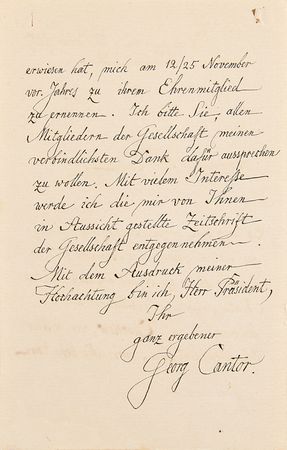 erwiesen hat, mich am 12/25 November
vor. Jahres zu ihrem Ehrenmitglied
zu ernennen. Ich bitte Sie, allen
Mitgliedern der Gesellschaft meinen
verbindlichsten Dank dafür aussprechen
zu wollen. Mit vielem Interesse
werde ich die mir von Ihnen
in Aussicht gestellte Zeitschrift
der Gesellschaft entgegennehmen.
Mit dem Ausdruck meiner
Hochachtung bin ich, Herr Präsident,
Ihr
ganz ergebener
Georg Cantor.